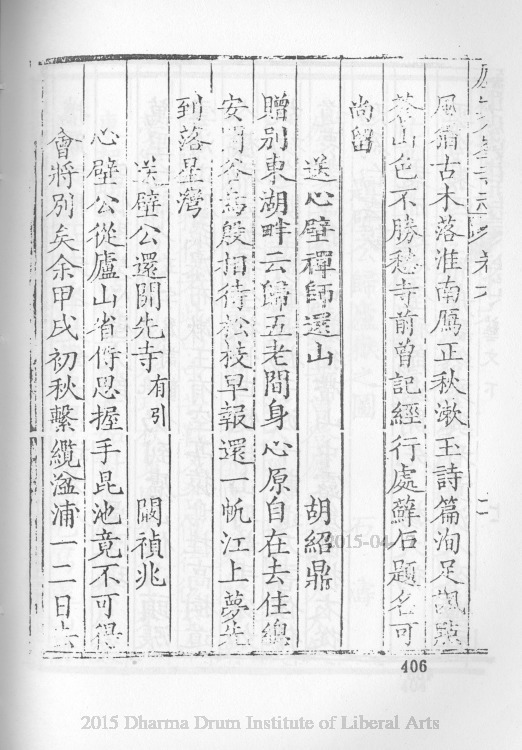 志卷 二
風古木落淮南鴈正秋漱玉詩篇洵足諷
蒼山色不勝愁寺前曾記經行處蘚石題名可
尚留
送心壁禪師還山 胡紹鼎
贈別東湖畔云歸五老間身心原自在去住總
安閒谷鳥殷相待松枝早報還一帆江上夢先
到落星灣
送壁公還開先寺 有引 闞禎兆
心壁公從廬山省侍恩握手昆池竟不可得
會將別矣余甲戌初秋繫纜湓浦一二日
406
2015-04
2015 Dharma Drum Institute of Liberal Arts